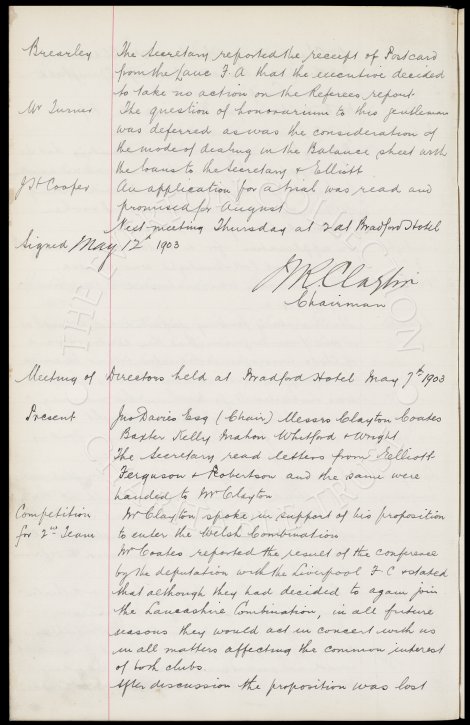 Brearley The Secretary reported the receipt of Postcard
from the Lanc F. A that the executive decided
to take no action on the Referees report
Mr Turner The question of honorarium to this gentleman
was deferred as was the consideration of
the mode of dealing in the Balance sheet with
the loans to the Secretary & Elliott
J H Cooper An application for a trial was read and
promised for August
Next meeting Thursday at 2 at Bradford Hotel
Signed May 12th 1903
Chairman
Meeting of Directors held at Bradford Hotel May 7th 1903
Present Jno Davies Esq (Chair) Messrs Clayton Coates
Baxter Kelly Mahon Whitford & Wright
The Secretary read letters from Elliott
Ferguson & Robertson and the same were
handed to Mr Clayton
Competition Mr Clayton spoke in support of his proposition
for 2nd Team to enter the Welsh Combination
Mr Coates reported the result of the conference
by the deputation with the Liverpool F C & stated
that although they had decided to again join
the Lancashire Combination, in all future
seasons they would act in concert with us
in all matters affecting the common interest
of both clubs.
After discussion the proposition was lost